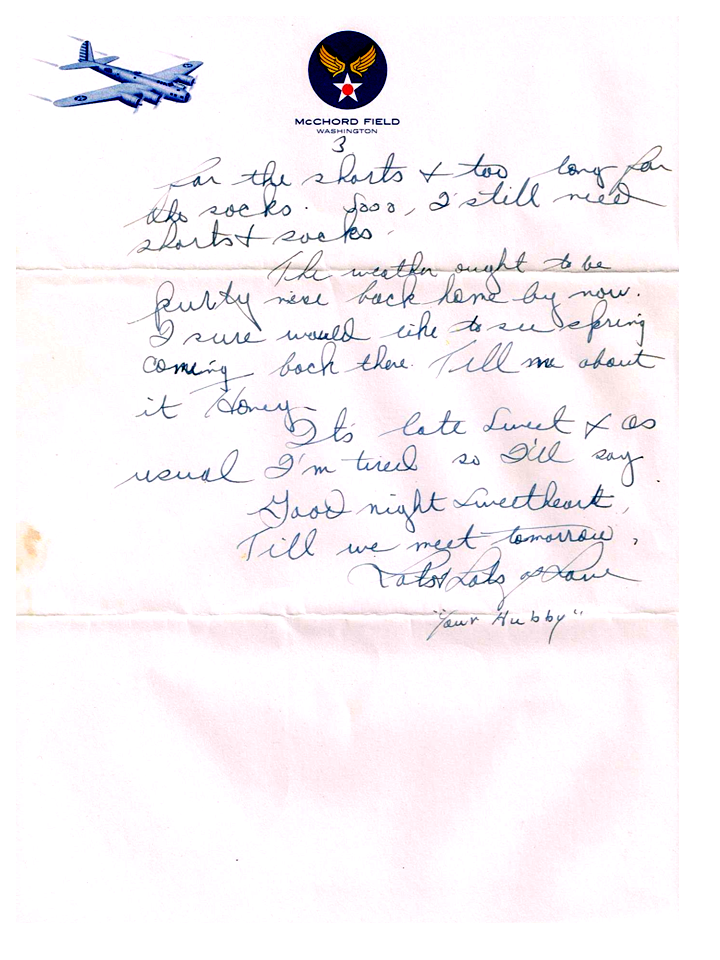 McCHORD FIELD
WASHINGTON
3
for the shorts & too long for
the socks. Sooo, I still need
shorts & socks.
The weather ought to be
purty nice back home by now.
I sure would like to see spring
coming back there. Tell me about
it Honey.
It's late Sweet & as
usual I'm tired so I'll say
Good night Sweetheart,
Till we meet tomorrow,
Lots & Lots of Love
"Your Hubby"